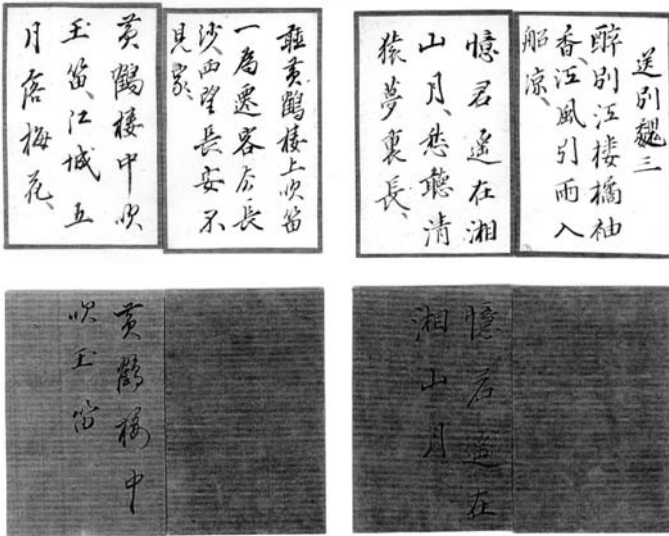 送別魏三
醉別江楼橘袖
香、江風引雨入
船凉、
憶君遥在湘
山月、愁聽清
猿夢裏長、
黄鶴楼上吹笛
一為遷客去長
沙西望長安不
見家、
黄鶴楼中吹
玉笛、江城五
月落梅花、
憶君遥在
湘山月
黄鶴楼中
吹玉笛